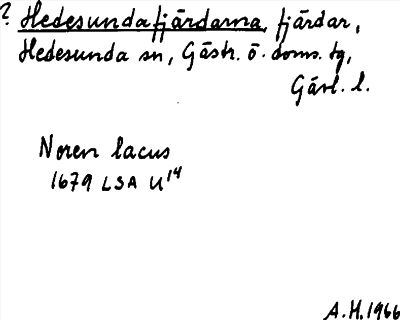 ? Hedesundafjärdarna, fjärdar,
Hedesunda sn, Gästr. ö. doms. tg,
Gävl. l.
Noren lacus
1679 LSA U14
A.H. 1966